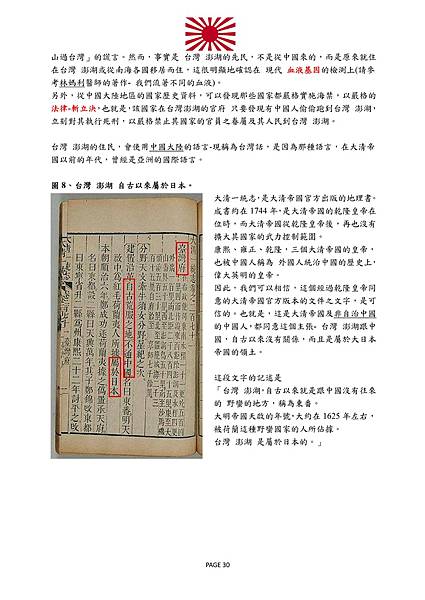 山過台灣」的謊言。然而，事實是 台灣 澎湖的先民，不是從中國來的，而是原來就住
在台灣 澎湖或從南海各國移居而住，這很明顯地確認在 現代 血液基因的檢測上(請參
考林媽利醫師的著作- 我們流著不同的血液)。
另外，從中國大陸地區的國家歷史資料，可以發現那些國家都嚴格實施海禁。以嚴格的
法律-斬立決，也就是，該國家在台灣澎湖的官府 只要發現有中國人偷偷跑到台灣 澎湖，
立刻對其執行死刑，以嚴格禁止其國家的官員之眷屬及其人民到台灣 澎湖。
台灣 澎湖的住民，會使用中國大陸的語言-現稱為台灣話，是因為那種語言，在大清帝
國以前的年代，曾經是亞洲的國際語言。
圖 8、台灣 澎湖 自古以來屬於日本。
臺灣府
分野天文牽牛須女分野星紀之次
建置沿革自古荒服之地不通中國名曰東番明天
啟中為紅毛荷蘭夷人所據屬於日本
本朝順治六年鄭成功逐荷蘭夷據之偽置承天府
名曰東都設二縣曰天興萬年其子鄭錦改東都
曰東寧省升二縣為州康熙二十二年討平之改
大清一統志，是大清帝國官方出版的地理書。
成書約在 1744 年，是大清帝國的乾隆皇帝在
位時，而大清帝國從乾隆皇帝後，再也沒有
擴大其國家的武力控制範圍。
康熙、雍正、乾隆，三個大清帝國的皇帝，
也被中國人稱為 外國人統治中國的歷史上，
偉大英明的皇帝。
因此，我們可以相信，這個經過乾隆皇帝同
意的大清帝國官方版本的文件之文字，是可
信的。也就是，這是大清帝國及非自治中國
的中國人，都同意這個主張- 台灣 澎湖跟中
國，自古以來沒有關係，而且是屬於大日本
帝國的領土。
這段文字的記述是
「台灣 澎湖，自古以來就是跟中國沒有往來
的 野蠻的地方，稱為東番。
大明帝國天啟的年號，大約在 1625 年左右，
被荷蘭這種野蠻國家的人所佔據。
台灣 澎湖 是屬於日本的。」
PAGE 30